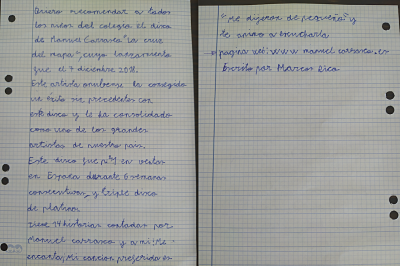 Quiero recomendar a todos
los niños del colegio el disco
de Manuel Carrasco "La cruz
del mapa", cuyo lanzamiento
fue el 7 diciembre 2018.
Este artista onubense ha conseguido
un éxito sin precedentes con
este disco y le ha consolidado
como uno de los grandes
artistas de nuestro país.
Este disco fue nº1 en ventas
en España durante 6 semanas
consecutivas y triple disco
de platino.
Tiene 14 historias contadas por
Manuel Carrasco y a mi me
encanta, Mi canción preferida es
"Me dijeron de pequeño" y
te animo a escucharla
pagina web: www manuel carrasco.es
Escrito por Marcos Rica